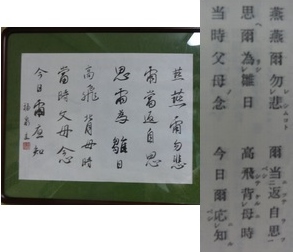 燕燕爾勿悲
爾當返自思
思爾為雛日
高飛背母時
當時父母念
今日爾應知
燕燕爾勿悲 爾当返自思
思爾為雛日 高飛背母時
当時父母念 今日爾応知